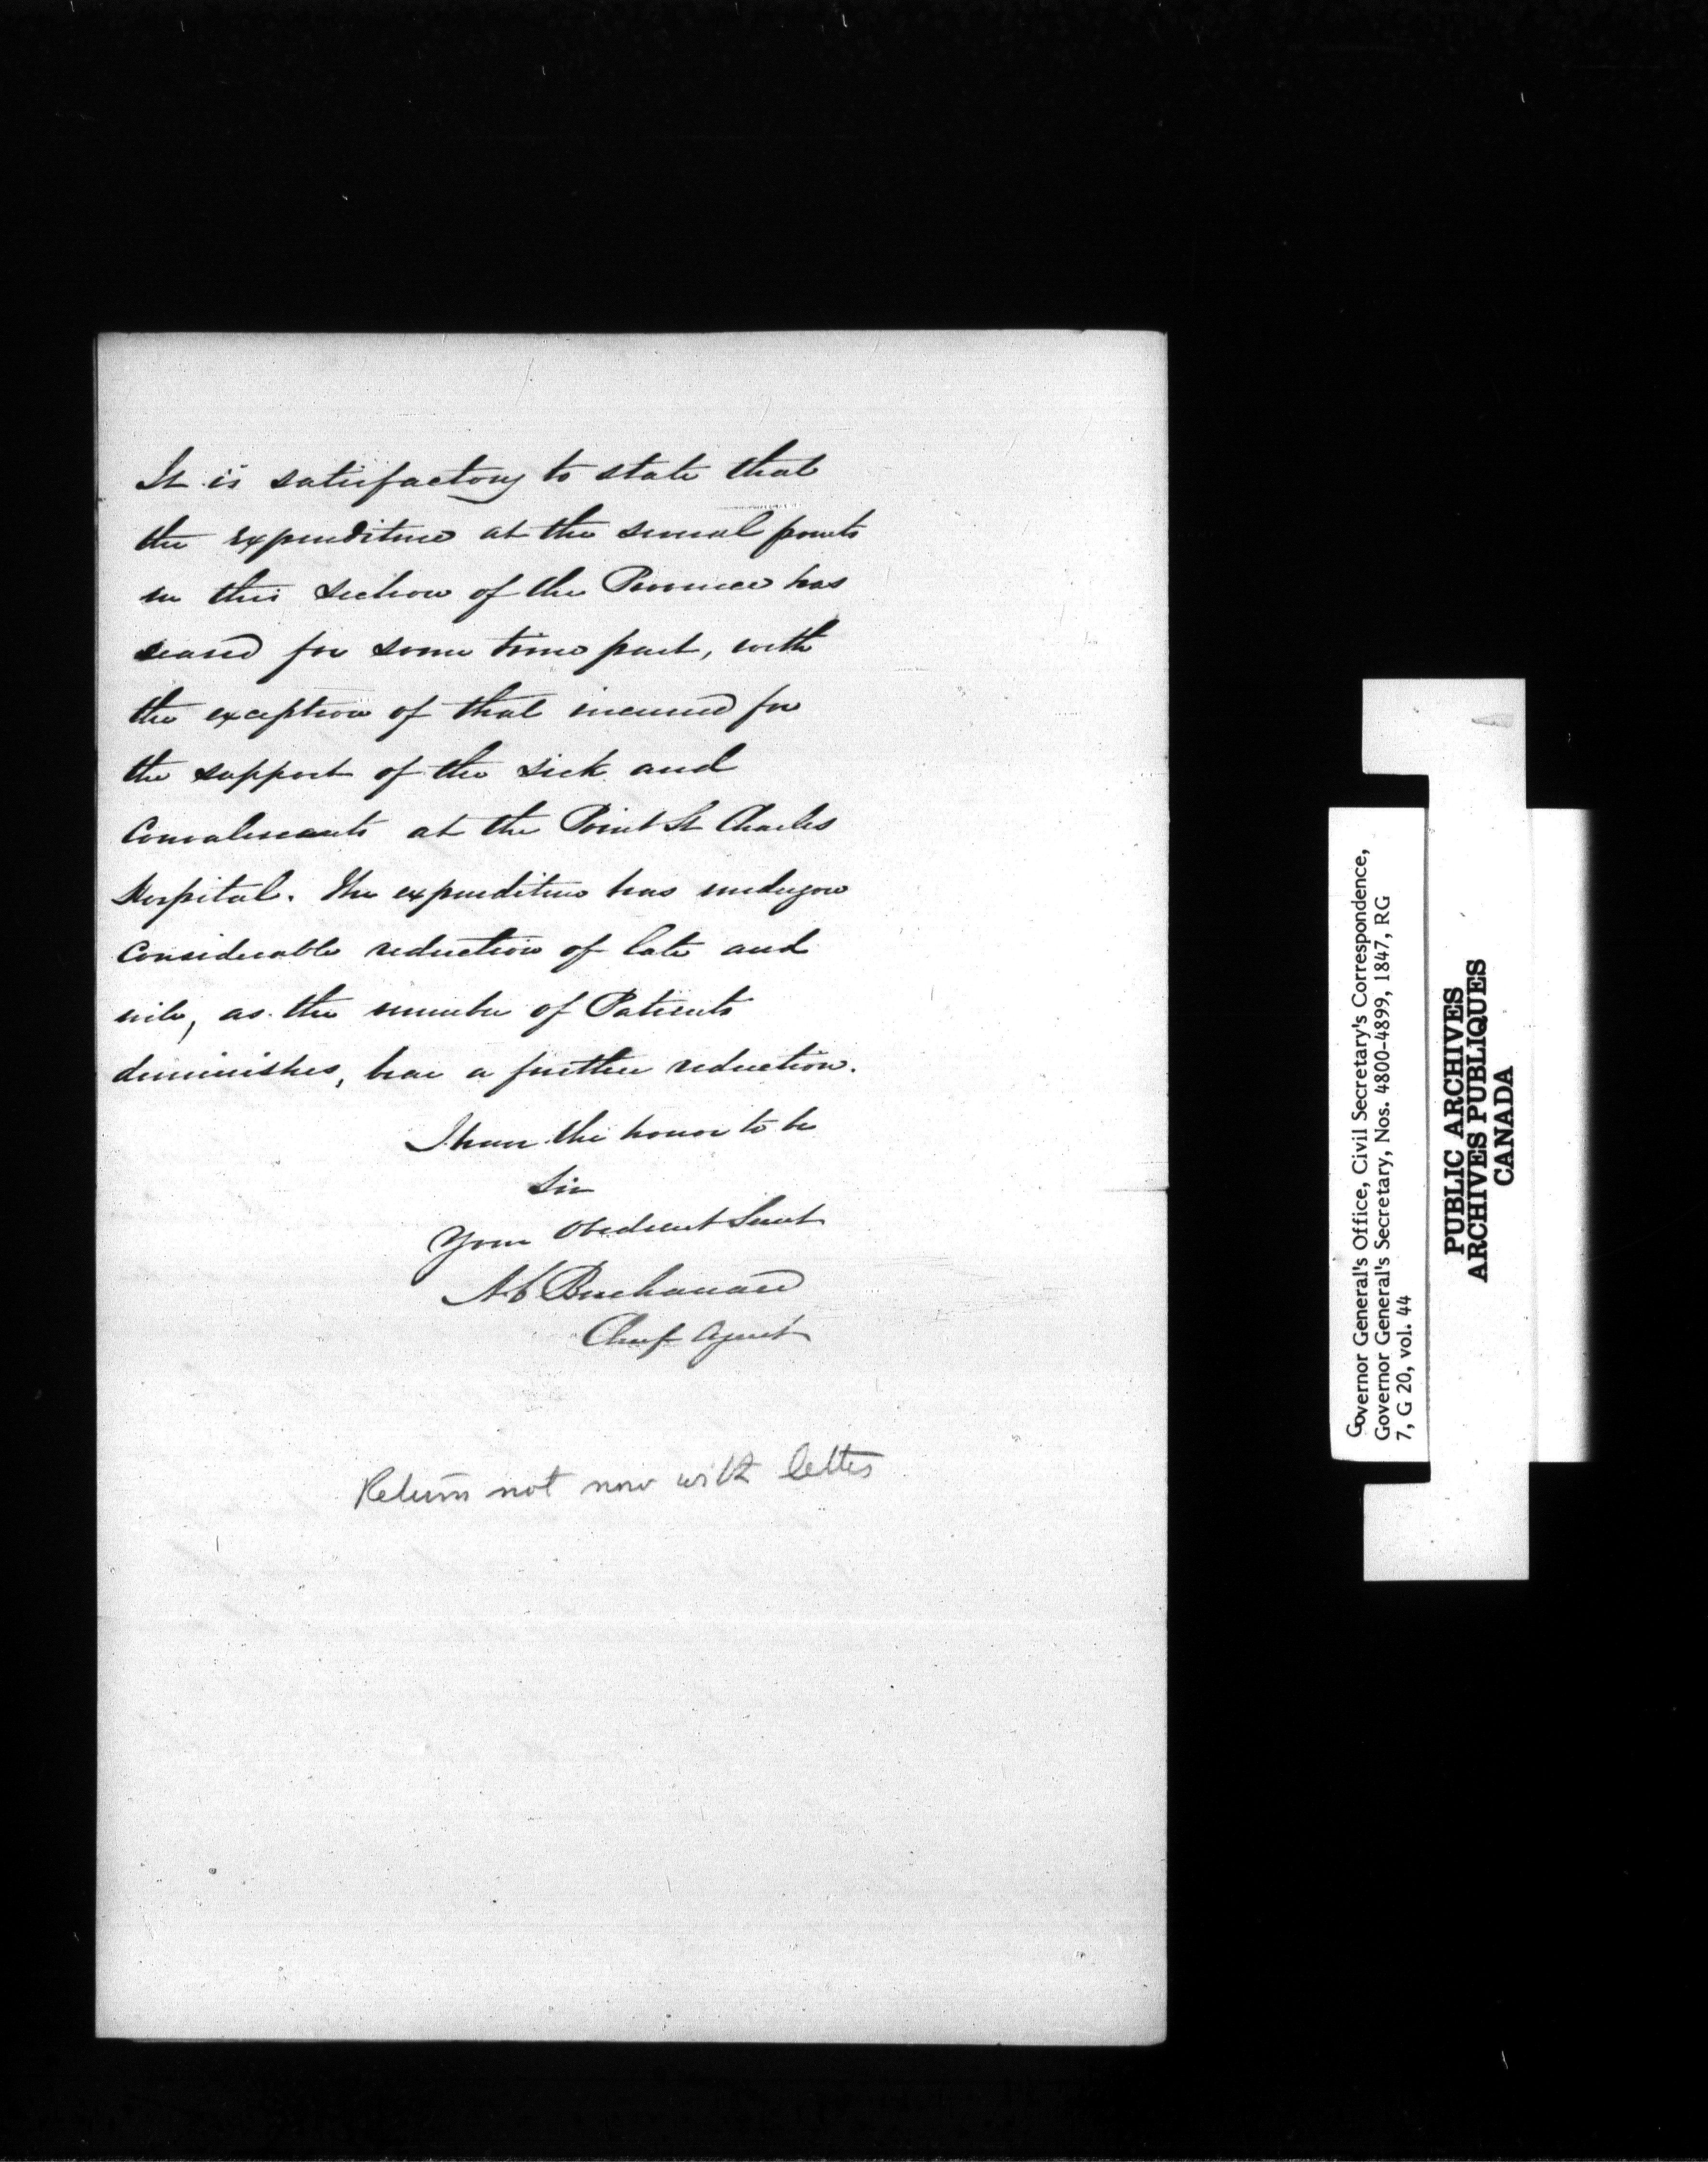 It is satisfactory to state that
the expenditure at the several points
in this section of the Province has
ceased for some time past, with
the exception of that incurred for
the support of the sick and
Convalescents at the Point St Charles
Hospital. The expenditure has undergone
Considerable reduction of late and
will, as the number of Patients
diminishes, bear a further reduction.
I have the honor to be
Sir
Your Obedient Servt
AC Buchanan
Chief Agent
Return not now with letter
Governor General's Office, Civil Secretary's Correspondence,
Governor General's Secretary, Nos. 4800-4899, 1847, RG
7, G 20, vol. 44
PUBLIC ARCHIVES
ARCHIVES PUBLIQUES
CANADA